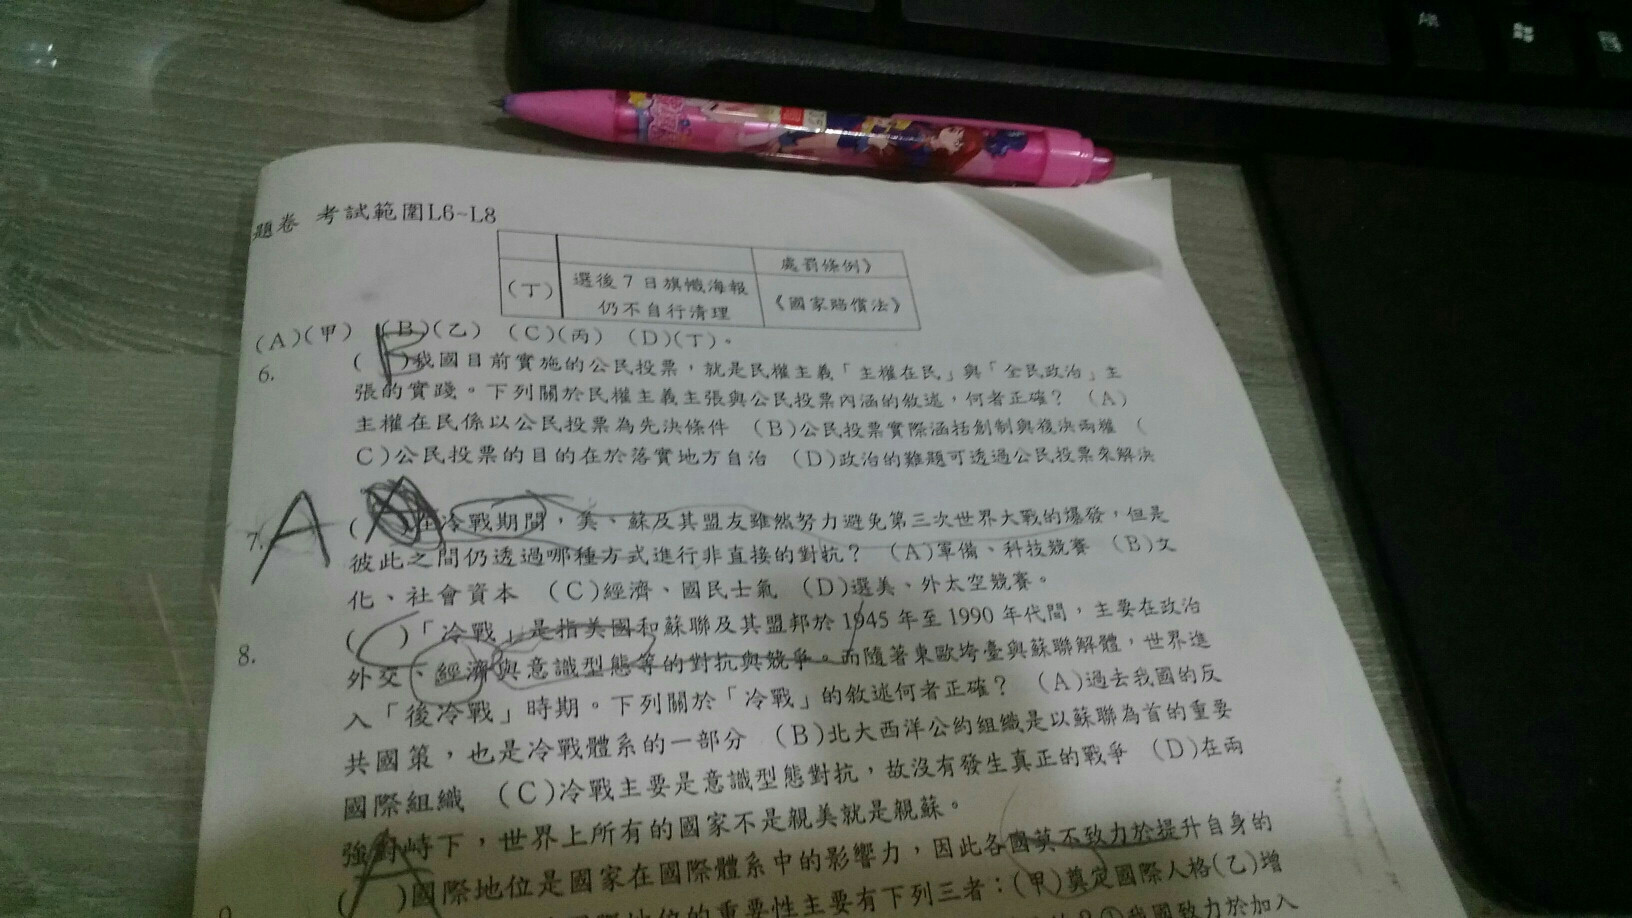 題卷 考試範圍L6~L8
處罰條例》
(丁) 選後7日旗幟海報 《國家賠償法》
仍不自行清理
(A)(甲) (B)(乙) (C)(丙) (D)(丁)。
6. ( B )我國目前實施的公民投票，就是民權主義「主權在民」與「全民政治」主
張的實踐。下列關於民權主義主張與公民投票內涵的敘述，何者正確？ (A)
主權在民係以公民投票為先決條件 (B)公民投票實際涵括創制與複決兩權 (
C)公民投票的目的在於落實地方自治 (D)政治的難題可透過公民投票來解決
7. A ( )在冷戰期間，美、蘇及其盟友雖然努力避免第三次世界大戰的爆發，但是
彼此之間仍透過哪種方式進行非直接的對抗？ (A)軍備、科技競賽 (B)文
化、社會資本 (C)經濟、國民士氣 (D)選美、外太空競賽。
8. ( )「冷戰」是指美國和蘇聯及其盟邦於1945年至1990年代間，主要在政治
外交、經濟與意識型態等的對抗與競爭。而隨著東歐垮臺與蘇聯解體，世界進
入「後冷戰」時期。下列關於「冷戰」的敘述何者正確？ (A)過去我國的反
共國策，也是冷戰體系的一部分 (B)北大西洋公約組織是以蘇聯為首的重要
國際組織 (C)冷戰主要是意識型態對抗，故沒有發生真正的戰爭 (D)在兩
強對峙下，世界上所有的國家不是親美就是親蘇。
( A )國際地位是國家在國際體系中的影響力，因此各國莫不致力於提升自身的
國際地位的重要性主要有下列三者：(甲)奠定國際人格(乙)增
①我國致力於加入